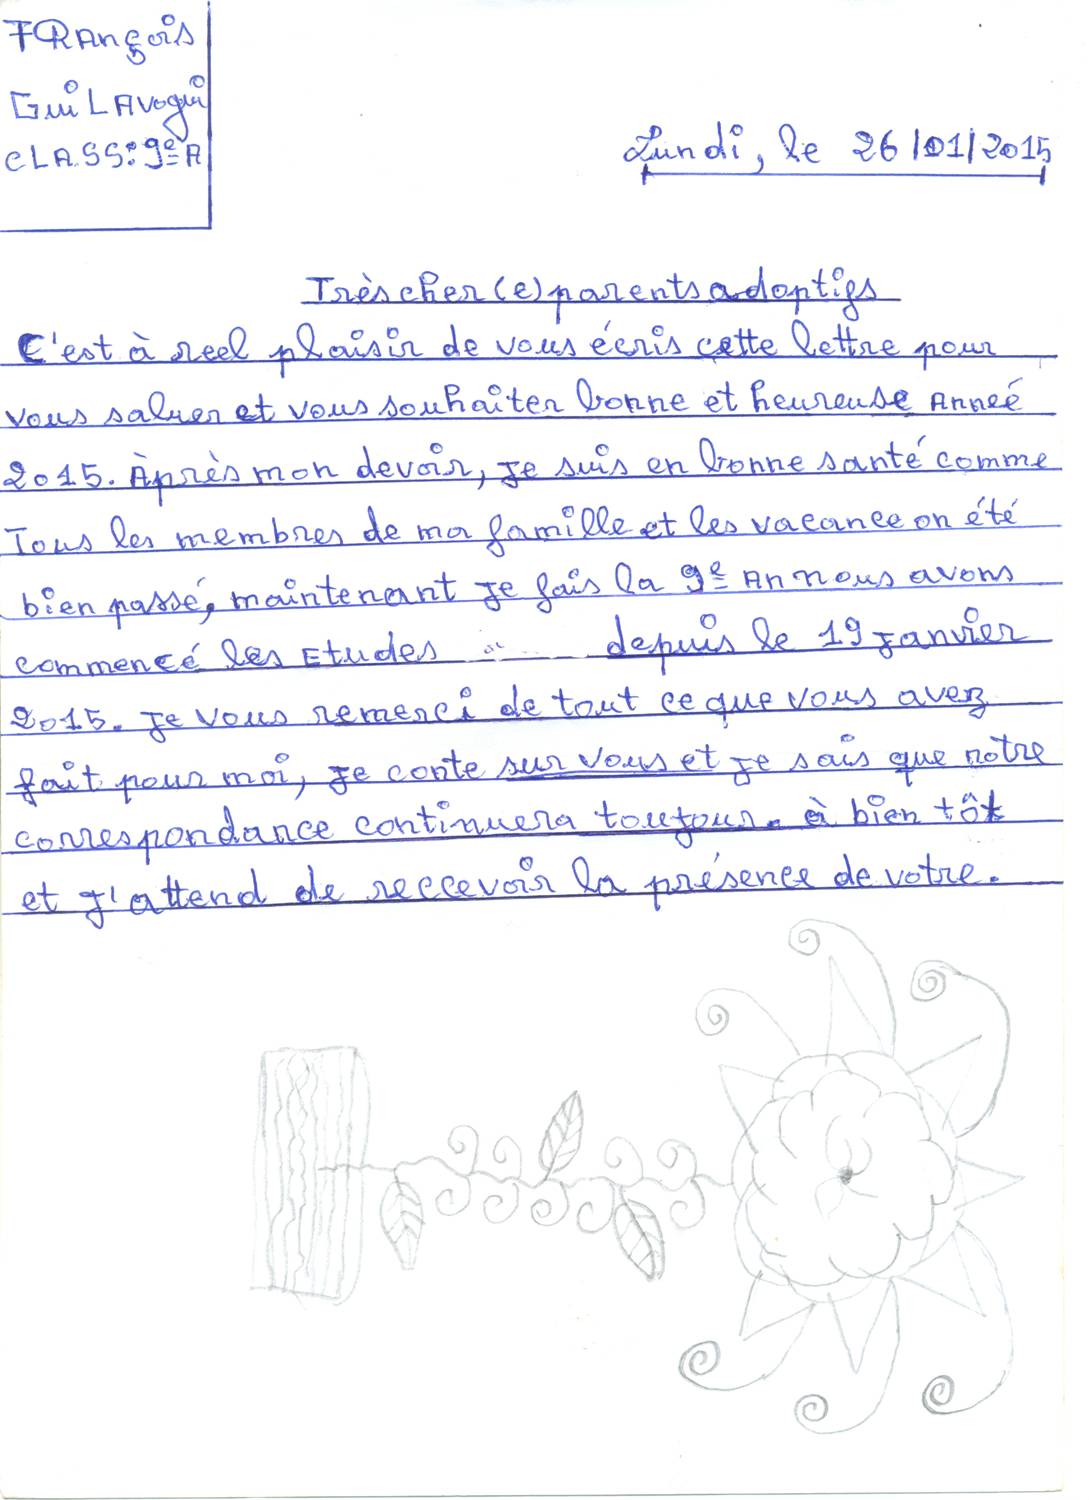 FRANçois
GuiLAvogui
cLASS: 9e A
Lundi, le 26/01/2015
Très cher(e) parents adoptifs
C'est à reel plaisir de vous écris cette lettre pour
vous saluer et vous souhaiter bonne et heureuse Anneé
2015. Après mon devoir, je suis en bonne santé comme
Tous les membres de ma famille et les vacance on été
bien passé, maintenant je fais la 9e An nous avons
commencé les Etudes depuis le 19 janvier
2015. je vous remerci de tout ce que vous avez
fait pour moi, je conte sur vous et je sais que notre
correspondance continuera toujour. à bien tôt
et j'attend de reccevoir la présence de votre.